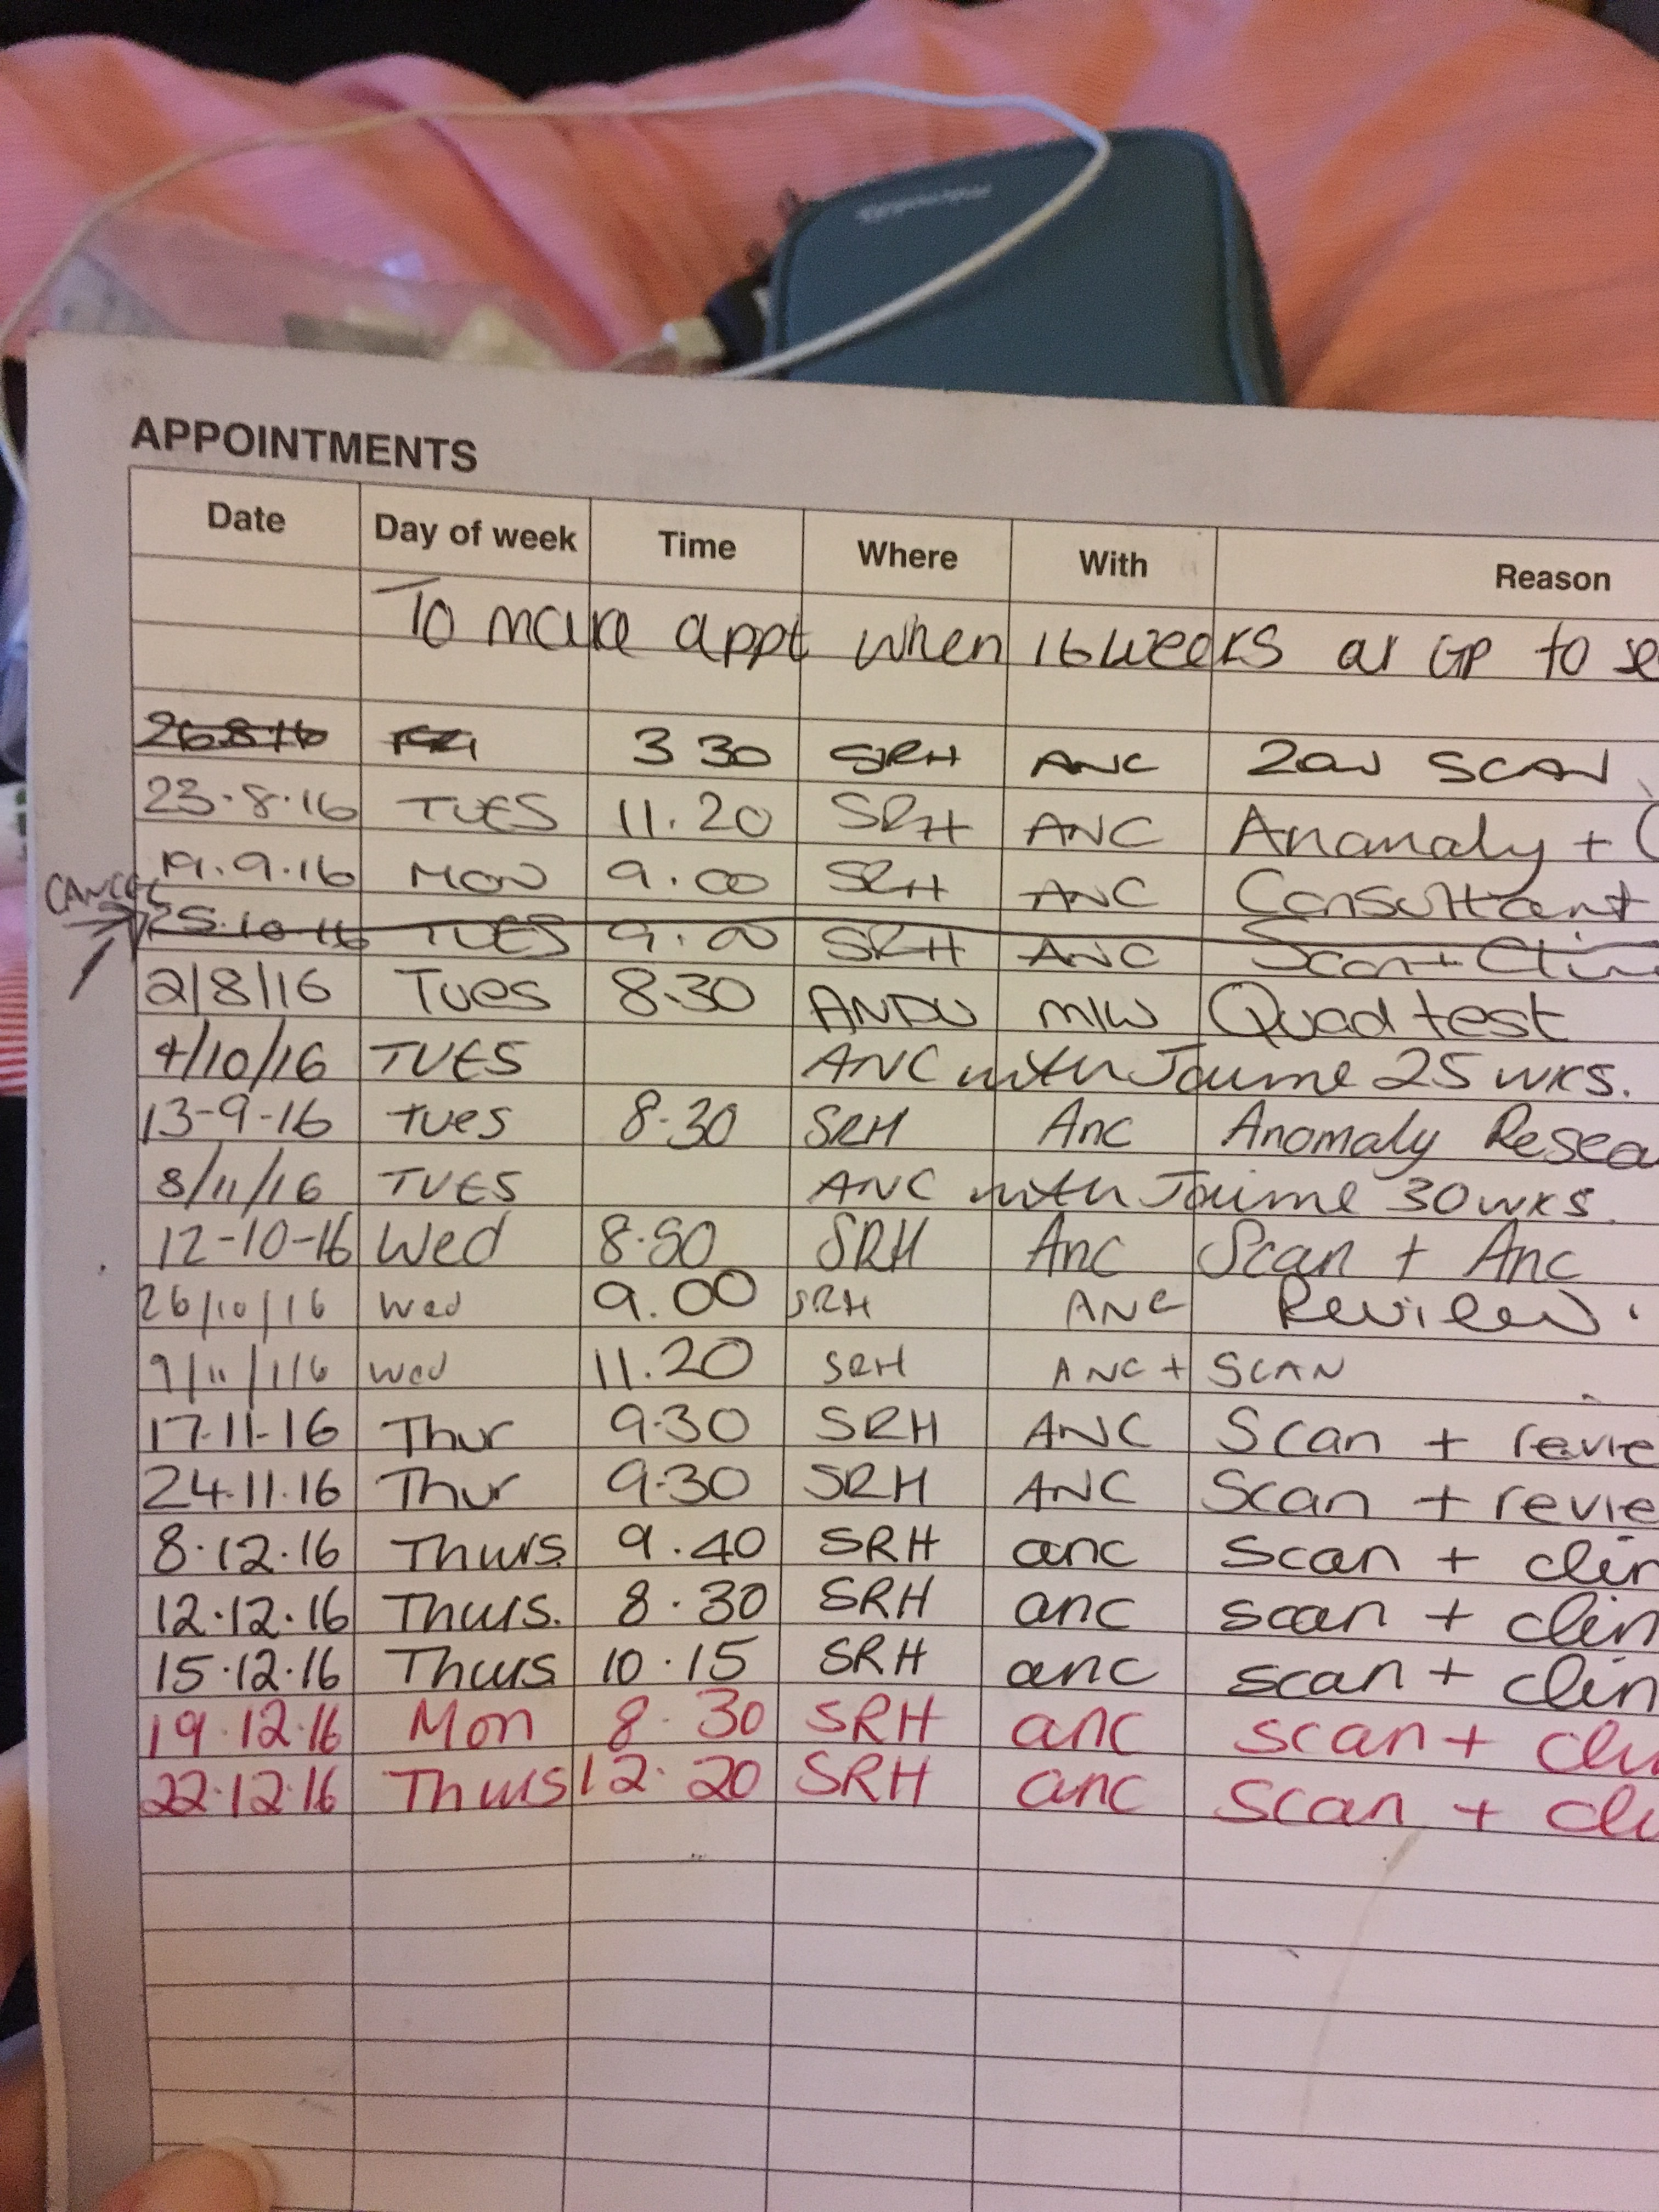 APPOINTMENTS
Date Day of week Time Where With Reason
To make appt when 16 weeks at GP to
26.8.16 FRI 3 30 SRH ANC 20W SCAN
23.8.16 TUES 11.20 SRH ANC Anamaly +
19.9.16 MON 9.00 SRH ANC Consultant
CANCEL
25.10.16 TUES 9.00 SRH ANC Scan +
2/8/16 Tues 8.30 ANDU M/W Quad test
4/10/16 TUES ANC with Jaime 25 wks.
13-9-16 Tues 8.30 SRH Anc Anomaly
8/11/16 TUES ANC with Jaime 30 wks.
12-10-16 Wed 8.50 SRH Anc Scan + Anc
26/10/16 Wed 9.00 SRH ANC Review.
9/11/16 Wed 11.20 SRH ANC + SCAN
17.11.16 Thur 9.30 SRH ANC Scan + revie
24.11.16 Thur 9.30 SRH ANC Scan + revie
8.12.16 Thurs 9.40 SRH anc scan + clin
12.12.16 Thurs. 8.30 SRH anc scan + clin
15.12.16 Thurs 10.15 SRH anc scan + clin
19.12.16 Mon 8.30 SRH anc scan + cli
22.12.16 Thurs 12.20 SRH anc scan + cli